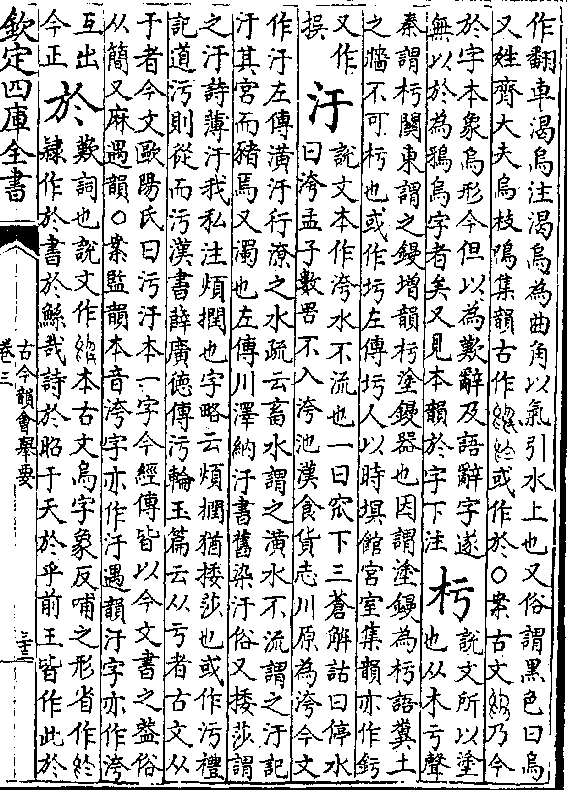 作翻車渴烏注渴烏為曲角以氣引水上也又俗謂黑色曰烏
又姓齊大夫烏枝鳴集韻古作或作於○案古文乃今
於字本象烏形今但以為歎辭及語辭字遂
無以於為鴉烏字者矣又見本韻於字下注
杇
說文所以塗
也从木亏聲
秦謂杇關東謂之鏝增韻杇塗鏝器也因謂塗鏝為杇語糞土
之牆不可杇也或作圬左傳圬人以時塓館宮室集韻亦作釫
又作
汙
說文本作洿水不流也一曰窊下三蒼解詁曰停水
曰洿孟子數罟不入洿池漢食貨志川原為洿今文
作汙左傳潢汙行潦之水疏云畜水謂之潢水不流謂之汙記
汙其宮而豬焉又濁也左傳川澤納汙書舊染汙俗又挼莎謂
之汙詩薄汙我私注煩撋也字略云煩撋猶挼莎也或作污禮
記道污則從而污漢書薛廣德傳污輪玉篇云从亏者古文从
于者今文歐陽氏曰污汙本一字今經傳皆以今文書之蓋俗
从簡又麻遇韻○案監韻本音洿字亦作汙遇韻汙字亦作洿
互出
今正
於
歎詞也說文作本古文烏字象反哺之形省作
隸作於書於鯀哉詩於昭于天於乎前王皆作此於
欽定四庫全書
古今韻會舉要
卷三